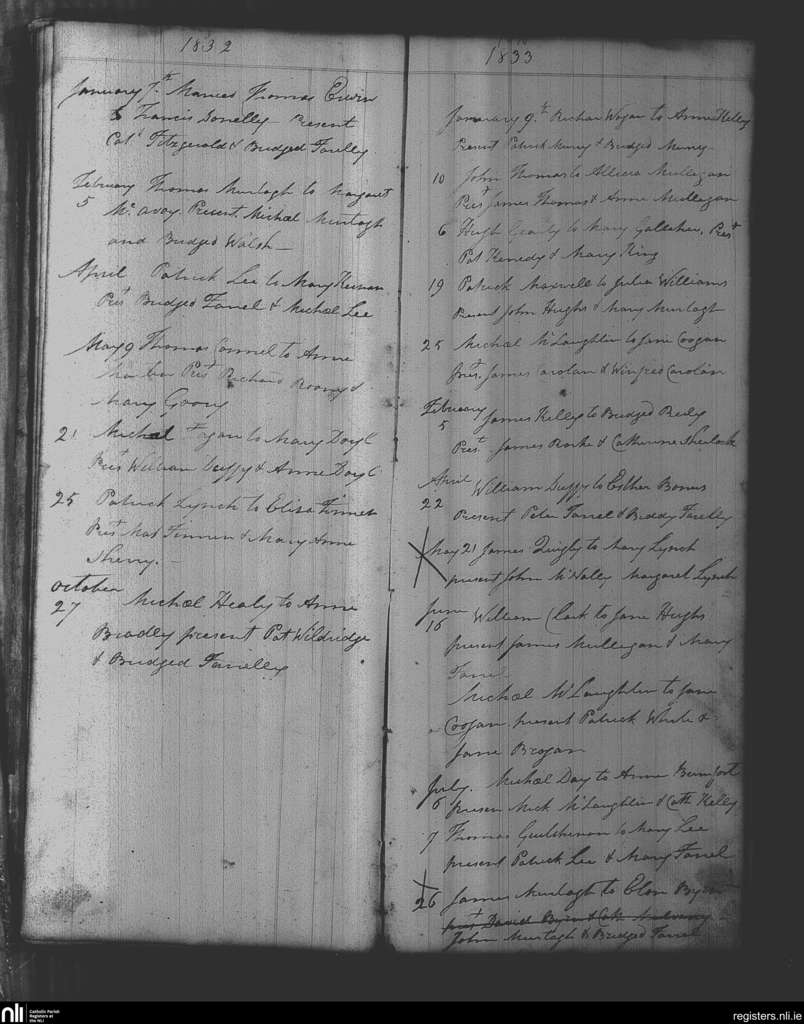 1832
January 7th Married Thomas Erwin
to Francis Donelly Present
Cat Fitzgerald & Bridged Farelly
February Thomas Murtagh to Margaret
5 Mc avoy Present Michael Murtagh
and Bridged Walsh
April Patrick Lee to Mary Keenan
Prest Bridged Farrel & Michael Lee
May 9 Thomas Connel to Anne
Prest Richard Roony &
Mary Goory
21 Michael Fagan to Mary Doyl
Prest William Duffy & Anne Doyl
25 Patrick Lynch to Eliza Finnen
Prest Mat Finnen & Mary Anne
Sherry.
October
27 Michael Healy to Anne
Bradly present Pat Wildridge
& Bridged Farrelly
1833
January 9th Richar Wogan to Anne Kelly
Present Patrick Murry & Bridged Murry
10 John Thomas to Mullegan
Prest James Thomas & Anne Mullegan
6 Hugh to Mary Gallaher, Prest
Pat Kenedy & Mary King
19 Patrick Maxwell to Julia Williams
Present John Hughs & Mary Murtagh
25 Michael McLaughlin to Jane Coogan
Prest. James arolan & Winefred Carolan
February James Kelly to Bridged Reily
5 Prest James Rorke & Catherine Sherlock
April William Duffy to Esther Bonus
22 Present Peter Farrel & Biddy Farelly
May 21 James Quigly to Mary Lynch
present John McNally Margaret Lynch
June
16 William Clark to Jane Hughs
present James Mullegan & Mary
Farrel
Michael McLaughlin to Jane
Coogan present Patrick &
Jane Brogan
July. Michael Day to Anne
6 presen Mick McLaughlin & Cath Kelly
7 Thomas to Mary Lee
present Patrick Lee & Mary Farrel
26 James Murtagh to Byrn
prest David Byrn & Cath Mulvany
John Murtagh & Bridged Farrel
nli
Catholic Parish
Registers at
the NLI
registers.nli.ie